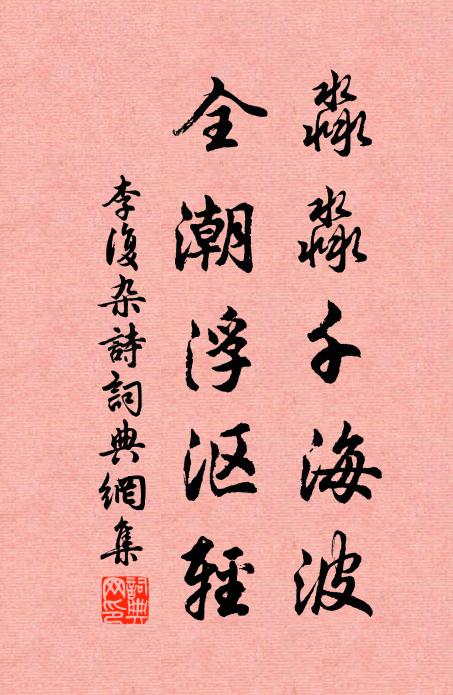 淼淼千海波
全潮浮沤輕
李復杂詩詞典網集
詞典网印